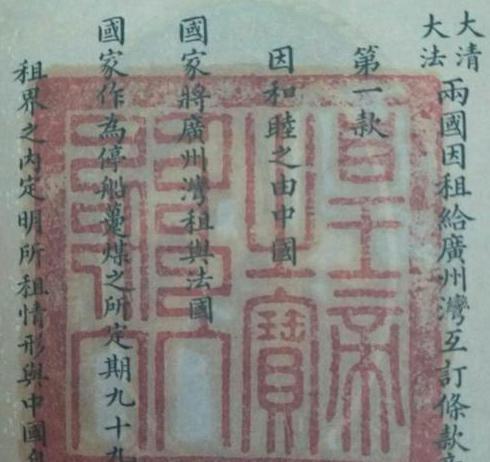 大清
大法
兩國因租給廣州灣互訂條款
第一款
因和睦之由中國
國家將廣州灣租與法國
國家作為停船躉煤之所定期九十九
租界之內定明所租情形與中國自
皇帝
之寶